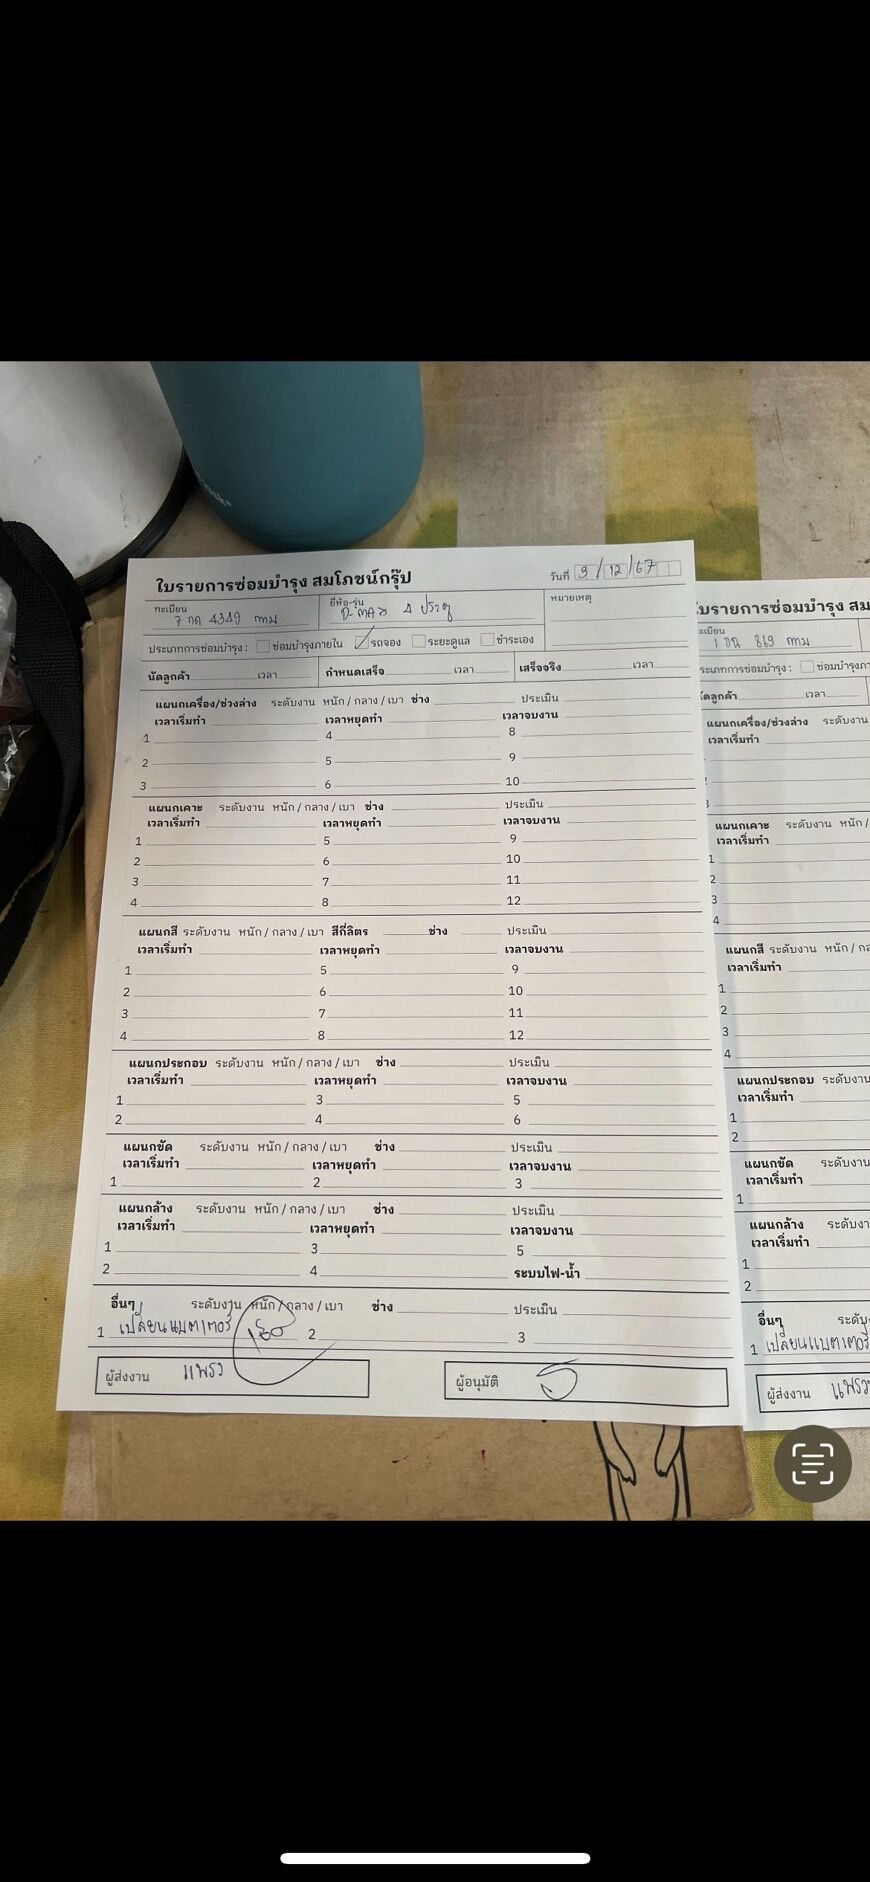 ใบรายการซ่อมบำรุง สมโภชน์กรุ๊ป
วันที่ 9/12/67
ทะเบียน
7 กด 4349 กทม
ยี่ห้อ-รุ่น
D-MAX 4 ประตู
หมายเหตุ
ประเภทการซ่อมบำรุง : ซ่อมบำรุงภายใน รถจอง ระยะดูแล ชำระเอง
นัดลูกค้า เวลา กำหนดเสร็จ เวลา เสร็จจริง เวลา
แผนกเครื่อง/ช่วงล่าง ระดับงาน หนัก / กลาง / เบา ช่าง ประเมิน
เวลาเริ่มทำ เวลาหยุดทำ เวลาจบงาน
1 4 8
2 5 9
3 6 10
แผนกเคาะ ระดับงาน หนัก / กลาง / เบา ช่าง ประเมิน
เวลาเริ่มทำ เวลาหยุดทำ เวลาจบงาน
1 5 9
2 6 10
3 7 11
4 8 12
แผนกสี ระดับงาน หนัก / กลาง / เบา สีกี่ลิตร ช่าง ประเมิน
เวลาเริ่มทำ เวลาหยุดทำ เวลาจบงาน
1 5 9
2 6 10
3 7 11
4 8 12
แผนกประกอบ ระดับงาน หนัก / กลาง / เบา ช่าง ประเมิน
เวลาเริ่มทำ เวลาหยุดทำ เวลาจบงาน
1 3 5
2 4 6
แผนกขัด ระดับงาน หนัก / กลาง / เบา ช่าง ประเมิน
เวลาเริ่มทำ เวลาหยุดทำ เวลาจบงาน
1 2 3
แผนกล้าง ระดับงาน หนัก / กลาง / เบา ช่าง ประเมิน
เวลาเริ่มทำ เวลาหยุดทำ เวลาจบงาน
1 3 5
2 4 ระบบไฟ-น้ำ
อื่นๆ ระดับงาน หนัก / กลาง / เบา ช่าง ประเมิน
1 เปลี่ยนแบตเตอรี่ 2 3
ผู้ส่งงาน แพรว ผู้อนุมัติ
ใบรายการซ่อมบำรุง สม
ทะเบียน
869 กทม
ประเภทการซ่อมบำรุง : ซ่อมบำรุงภา
นัดลูกค้า เวลา
แผนกเครื่อง/ช่วงล่าง ระดับงาน
เวลาเริ่มทำ
แผนกเคาะ ระดับงาน หนัก /
เวลาเริ่มทำ
1
2
3
4
แผนกสี ระดับงาน หนัก / กล
เวลาเริ่มทำ
1
2
3
4
แผนกประกอบ ระดับงาน
เวลาเริ่มทำ
1
2
แผนกขัด ระดับงาน
เวลาเริ่มทำ
1
แผนกล้าง ระดับง
เวลาเริ่มทำ
1
2
อื่นๆ ระดับ
1 เปลี่ยนแบตเตอรี่
ผู้ส่งงาน แพรว